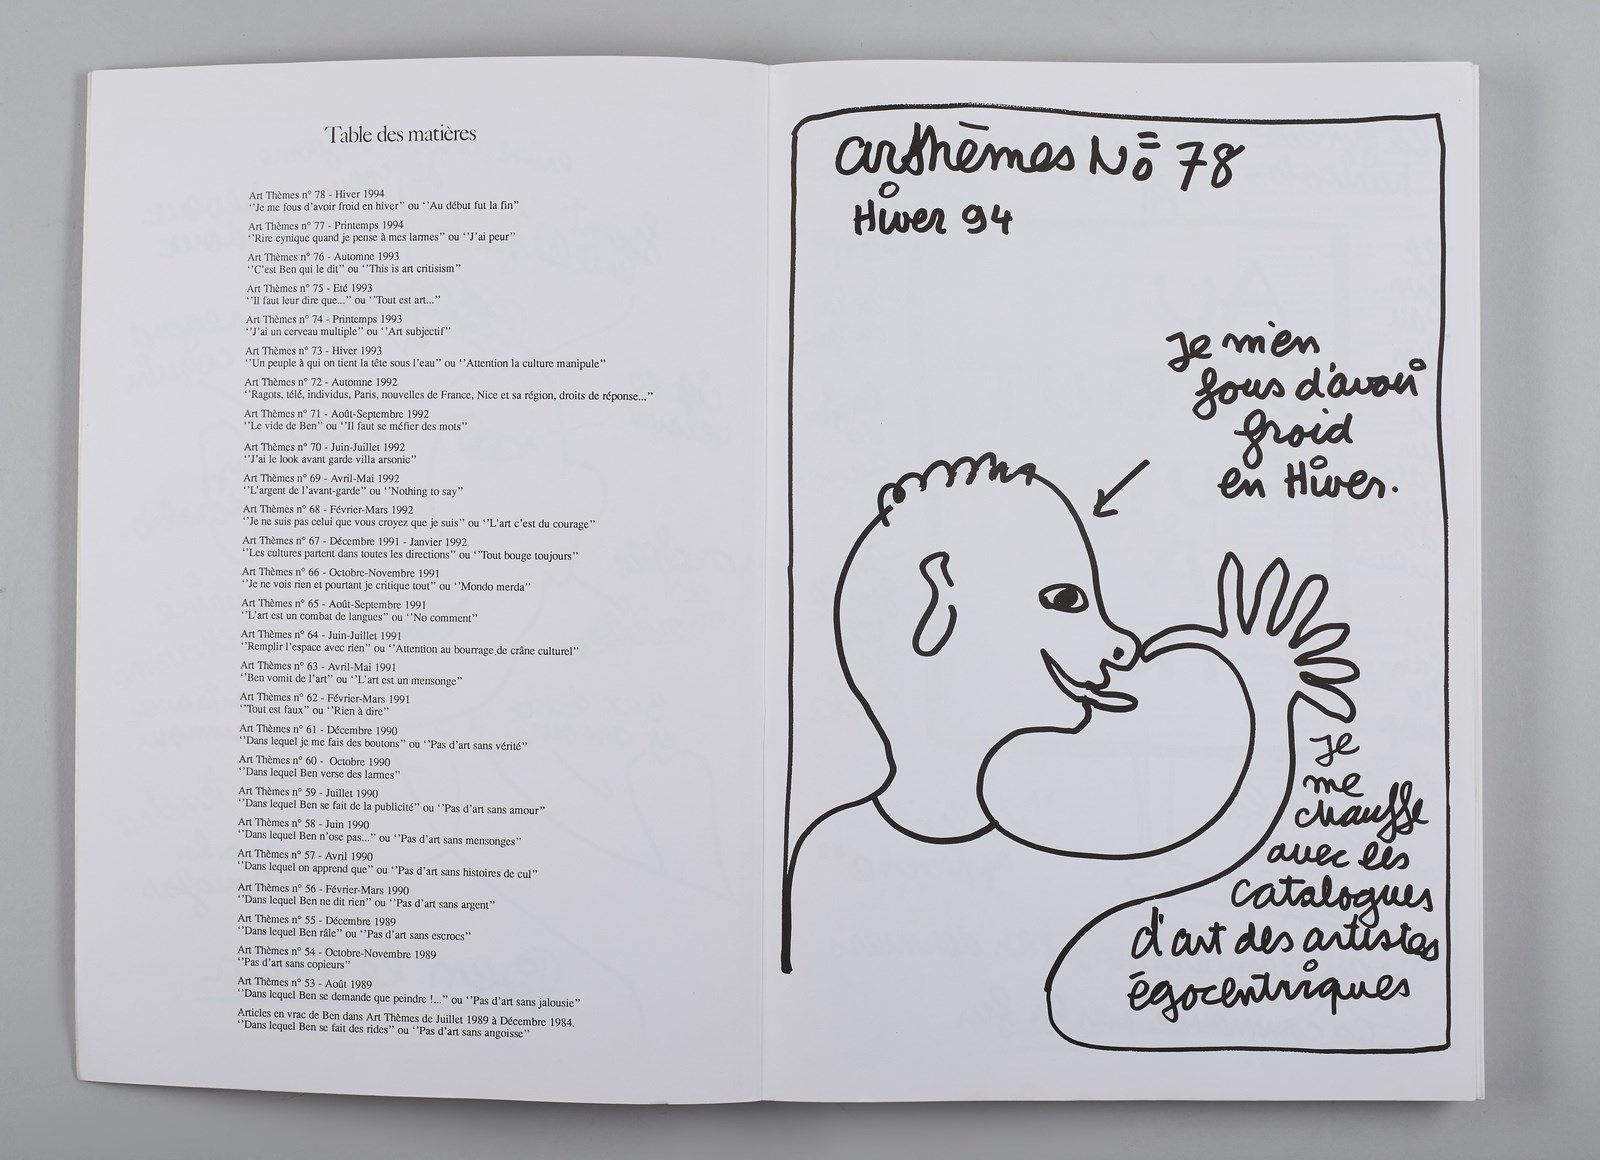 Table des matières
Art Thèmes n° 78 - Hiver 1994
‘‘Je me fous d'avoir froid en hiver’’ ou ‘‘Au début fut la fin’’
Art Thèmes n° 77 - Printemps 1994
‘‘Rire cynique quand je pense à mes larmes’’ ou ‘‘J'ai peur’’
Art Thèmes n° 76 - Automne 1993
‘‘C'est Ben qui le dit’’ ou ‘‘This is art critisism’’
Art Thèmes n° 75 - Eté 1993
‘‘Il faut leur dire que...’’ ou ‘‘Tout est art...’’
Art Thèmes n° 74 - Printemps 1993
‘‘J'ai un cerveau multiple’’ ou ‘‘Art subjectif’’
Art Thèmes n° 73 - Hiver 1993
‘‘Un peuple à qui on tient la tête sous l'eau’’ ou ‘‘Attention la culture manipule’’
Art Thèmes n° 72 - Automne 1992
‘‘Ragots, télé, individus, Paris, nouvelles de France, Nice et sa région, droits de réponse...’’
Art Thèmes n° 71 - Août-Septembre 1992
‘‘Le vide de Ben’’ ou ‘‘Il faut se méfier des mots’’
Art Thèmes n° 70 - Juin-Juillet 1992
‘‘J'ai le look avant garde villa arsonic’’
Art Thèmes n° 69 - Avril-Mai 1992
‘‘L'argent de l'avant-garde’’ ou ‘‘Nothing to say’’
Art Thèmes n° 68 - Février-Mars 1992
‘‘Je ne suis pas celui que vous croyez que je suis’’ ou ‘‘L'art c'est du courage’’
Art Thèmes n° 67 - Décembre 1991 - Janvier 1992
‘‘Les cultures partent dans toutes les directions’’ ou ‘‘Tout bouge toujours’’
Art Thèmes n° 66 - Octobre-Novembre 1991
‘‘Je ne vois rien et pourtant je critique tout’’ ou ‘‘Mondo merda’’
Art Thèmes n° 65 - Août-Septembre 1991
‘‘L'art est un combat de langues’’ ou ‘‘No comment’’
Art Thèmes n° 64 - Juin-Juillet 1991
‘‘Remplir l'espace avec rien’’ ou ‘‘Attention au bourrage de crâne culturel’’
Art Thèmes n° 63 - Avril-Mai 1991
‘‘Ben vomit de l'art’’ ou ‘‘L'art est un mensonge’’
Art Thèmes n° 62 - Février-Mars 1991
‘‘Tout est faux’’ ou ‘‘Rien à dire’’
Art Thèmes n° 61 - Décembre 1990
‘‘Dans lequel je me fais des boutons’’ ou ‘‘Pas d'art sans vérité’’
Art Thèmes n° 60 - Octobre 1990
‘‘Dans lequel Ben verse des larmes’’
Art Thèmes n° 59 - Juillet 1990
‘‘Dans lequel Ben se fait de la publicité’’ ou ‘‘Pas d'art sans amour’’
Art Thèmes n° 58 - Juin 1990
‘‘Dans lequel Ben n'ose pas...’’ ou ‘‘Pas d'art sans mensonges’’
Art Thèmes n° 57 - Avril 1990
‘‘Dans lequel on apprend que’’ ou ‘‘Pas d'art sans histoires de cul’’
Art Thèmes n° 56 - Février-Mars 1990
‘‘Dans lequel Ben ne dit rien’’ ou ‘‘Pas d'art sans argent’’
Art Thèmes n° 55 - Décembre 1989
‘‘Dans lequel Ben râle’’ ou ‘‘Pas d'art sans escrocs’’
Art Thèmes n° 54 - Octobre-Novembre 1989
‘‘Pas d'art sans copieurs’’
Art Thèmes n° 53 - Août 1989
‘‘Dans lequel Ben se demande que peindre !...’’ ou ‘‘Pas d'art sans jalousie’’
Articles en vrac de Ben dans Art Thèmes de Juillet 1989 à Décembre 1984.
‘‘Dans lequel Ben se fait des rides’’ ou ‘‘Pas d'art sans angoisse’’
arthèmes No 78
Hiver 94
Je m'en
fous d'avoir
froid
en Hiver.
Je
me
chauffe
avec les
catalogues
d'art des artistes
égocentriques